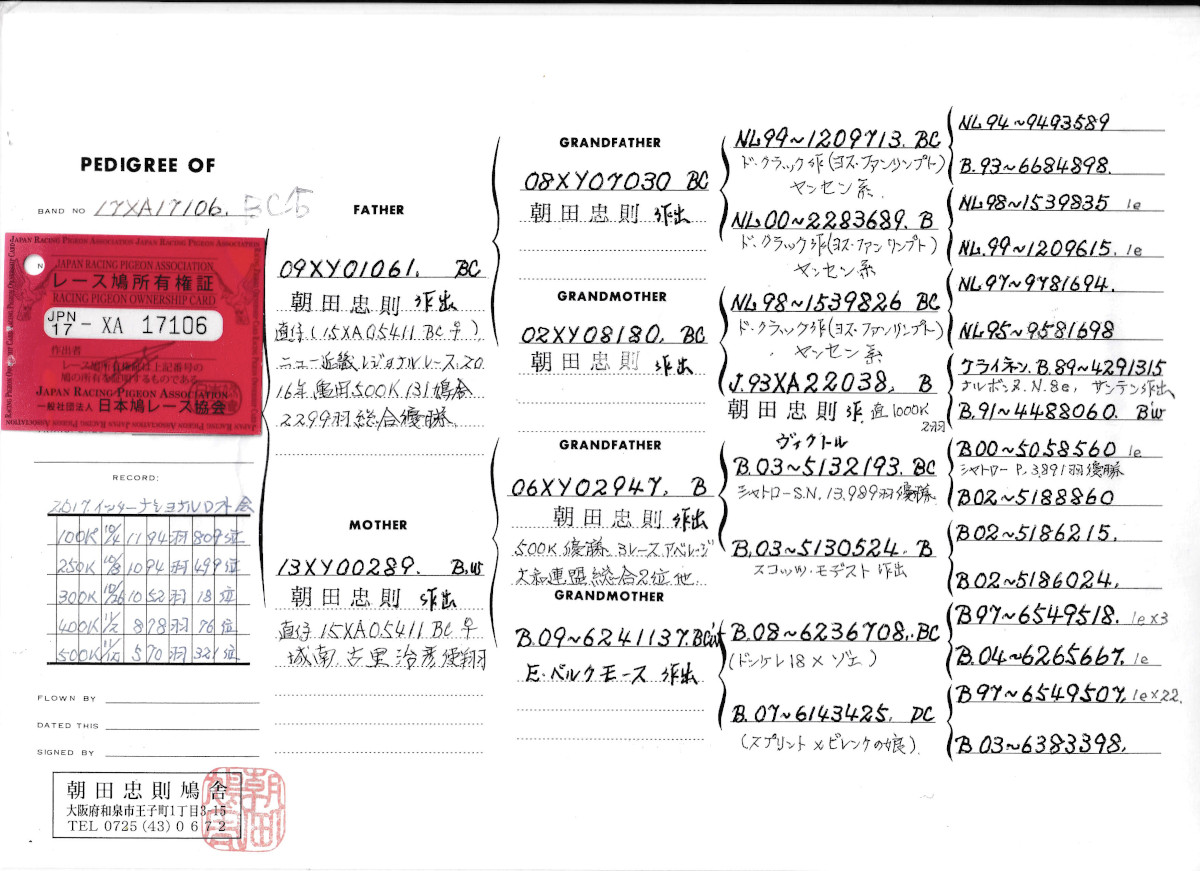 PEDIGREE OF
BAND NO 17XA17106. BC
JAPAN RACING PIGEON ASSOCIATION
レース鳩所有権証
RACING PIGEON OWNERSHIP CARD
JPN
17 - XA 17106
作出者
レース鳩所有権証は上記番号の
鳩の所有を証明するものである
JAPAN RACING PIGEON ASSOCIATION
一般社団法人 日本鳩レース協会
RECORD:
2017.インターナショナルVロフト会
100K 10/4 1194羽 809位
250K 1094羽 499位
300K 10/26 1052羽 18位
400K 878羽 76位
500K 570羽 321位
FLOWN BY
DATED THIS
SIGNED BY
朝田忠則鳩舎
大阪府和泉市王子町1丁目3-15
TEL 0725 (43) 0672
FATHER
09XY01061. BC
朝田忠則 作出
直仔(15XA05411 BC ♀)
ニュー近畿レジョナルレース.20
16年 亀田500K 131鳩舎
2299羽総合優勝
MOTHER
13XY00289. B.W
朝田忠則 作出
直仔15XA05411 BC ♀
城南 古里治彦使翔
GRANDFATHER
08XY07030 BC
朝田忠則 作出
GRANDMOTHER
02XY08180. BC
朝田忠則 作出
GRANDFATHER
06XY02947. B
朝田忠則 作出
500K優勝 3レースアベレージ
大和連盟総合2位 他.
GRANDMOTHER
B.09~6241137.BCW
E.ベルクモース 作出
NL99~1209713. BC
ド.クラック作(ヨス・ファンリンプト)
ヤンセン系
NL00~2283689. B
ド.クラック作(ヨス・ファンリンプト)
ヤンセン系
NL98~1539826 BC
ド.クラック作(ヨス・ファンリンプト)
ヤンセン系
J.93XA22038. B
朝田忠則 作 直1000K
2羽
ヴィクトル
B.03~5132193. BC
シャトローS.N. 13.989羽優勝
B.03~5130524. B
スコッツ・モデスト 作出
B.08~6236708. BC
(ドンケレ18×ゾエ)
B.07~6143425. DC
(スプリント×ビレンケの娘)
NL94~9493589
B.93~6684898.
NL98~1539835 1e
NL.99~1209615. 1e
NL97~9781694.
NL95~9581698
クライネン.B.89~4291315
ナルボンヌ.N.8e, サンテン作出
B.91~4488060. BW
B00~5058560 1e
シャトロー P.3891羽優勝
B02~5188860
B02~5186215.
B02~5186024.
B97~6549518. 1e×3
B.04~6265667. 1e
B97~6549507. 1e×22.
B03~6383398.